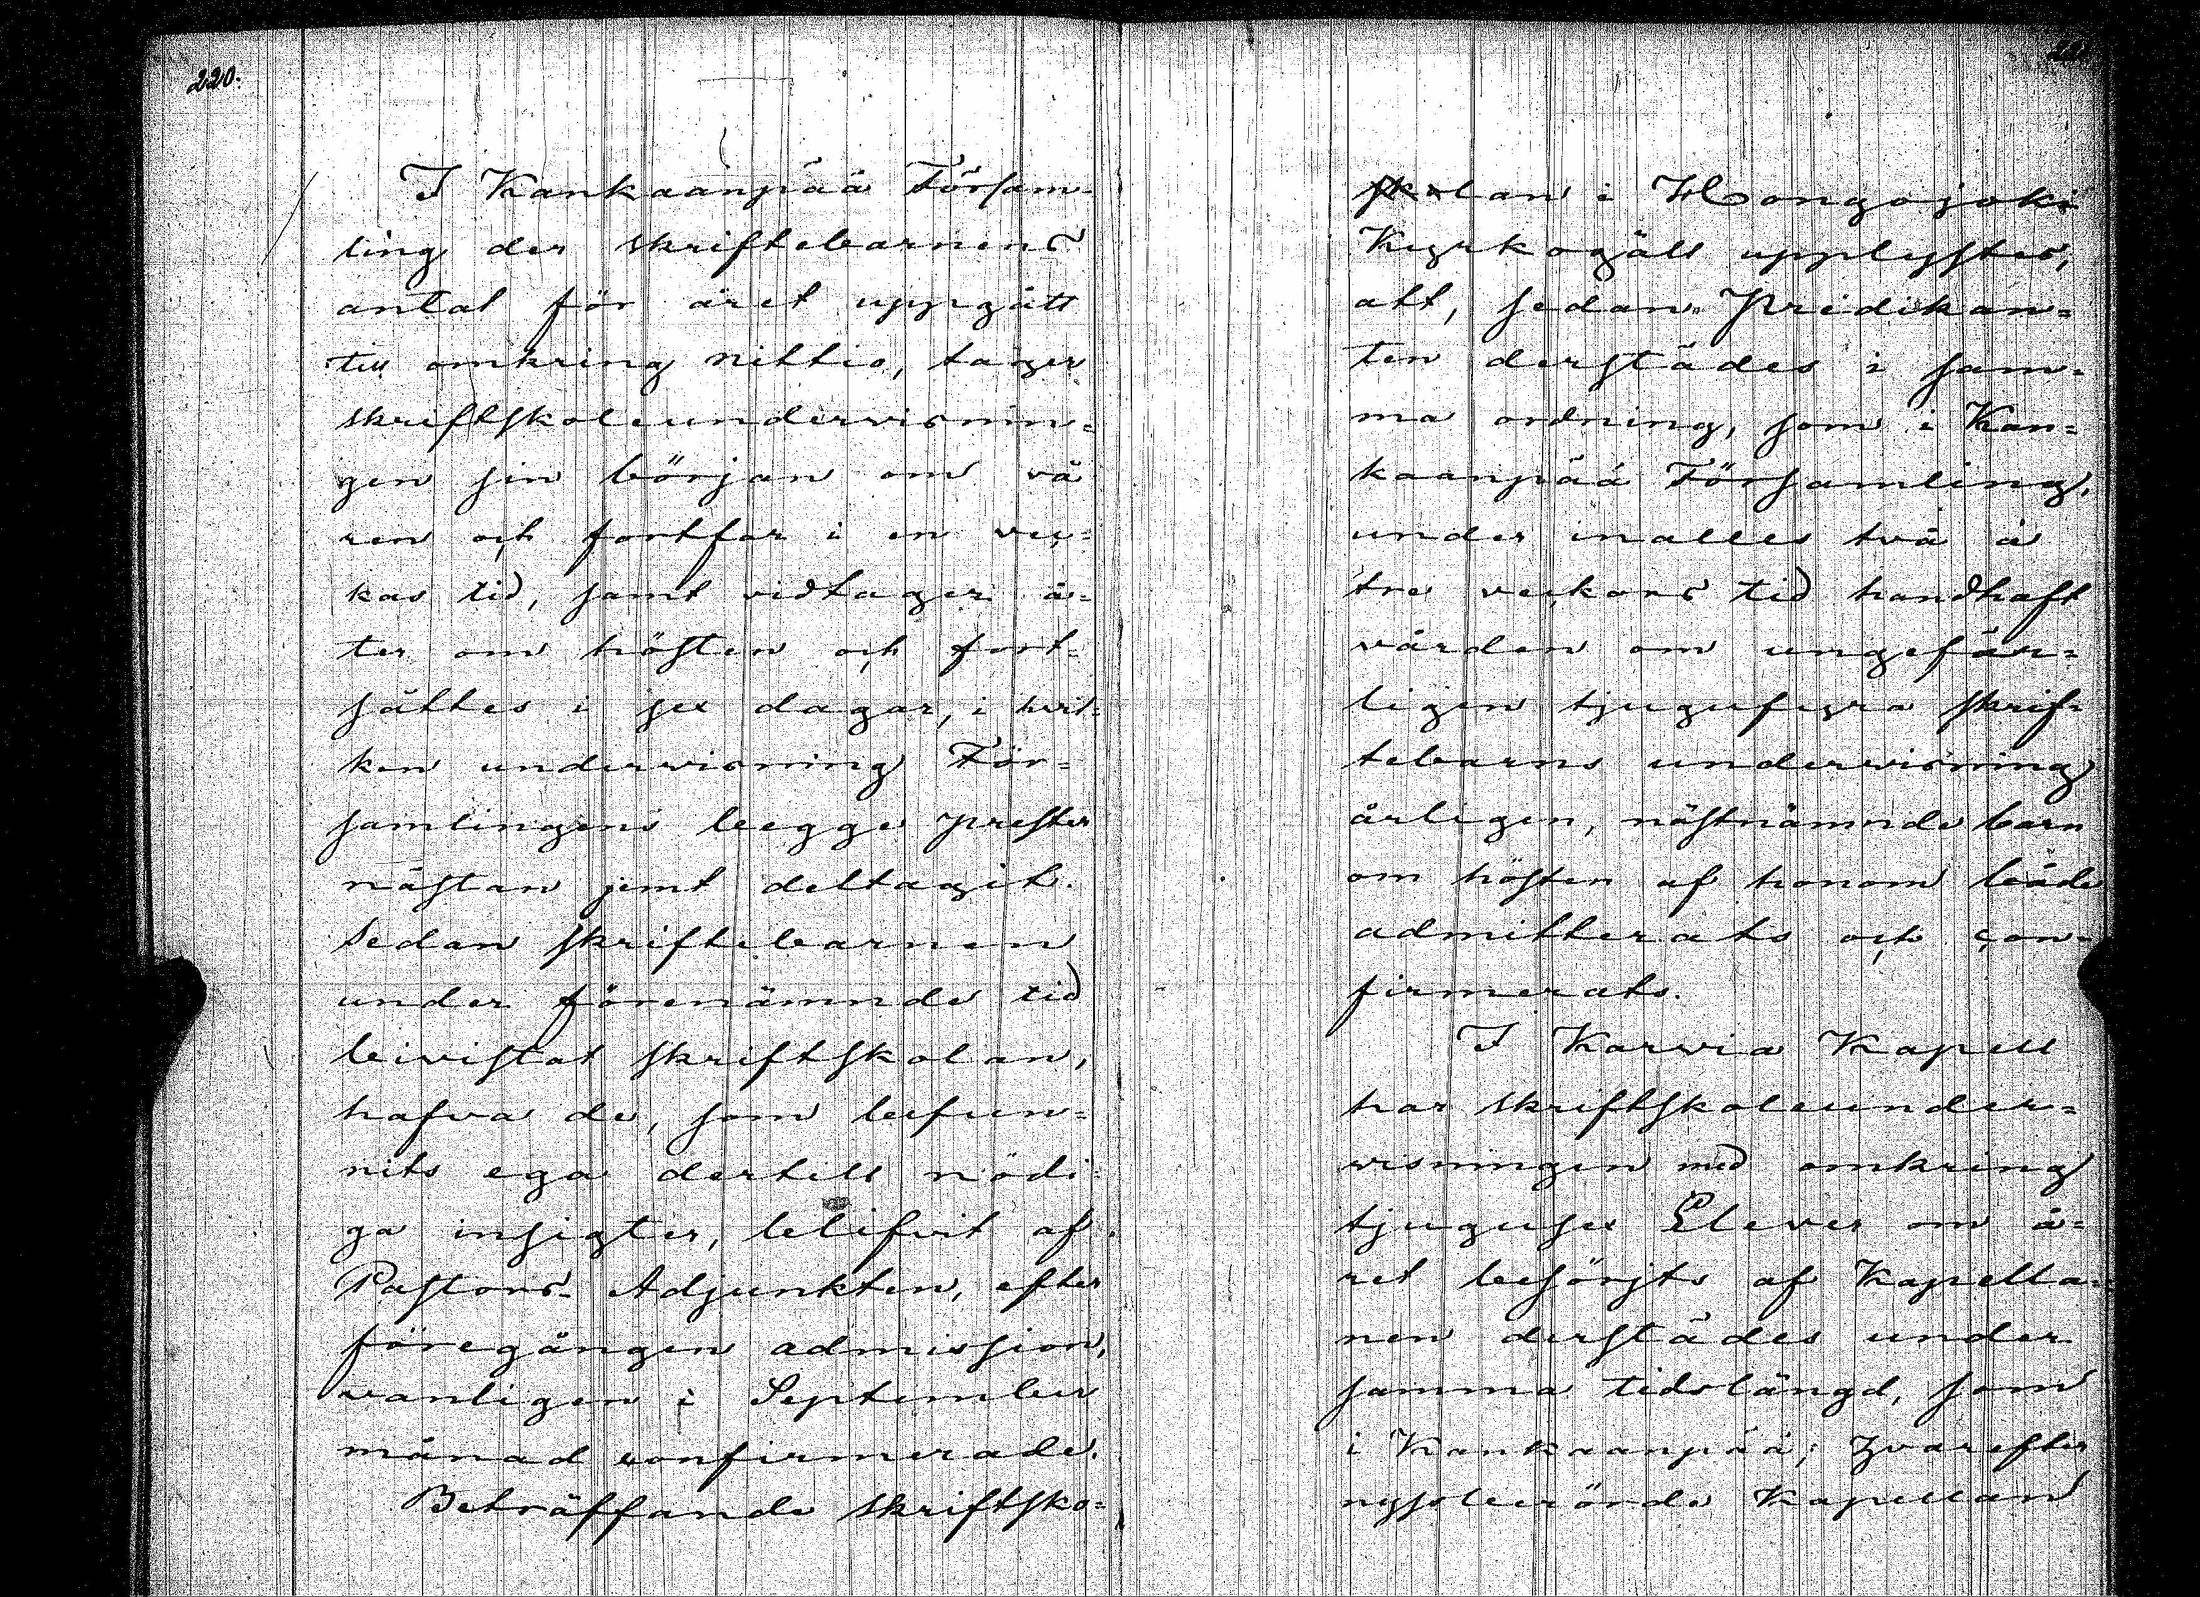 220.
I Kankaanpää Försam-
ling der skriftebarnens
antal för året uppgått
till omkring nittio, tager
skriftskoleundervisnin=
gen sin början om vå
ren och fortfar i en vec=
kas tid, samt vidtager å=
ter om hösten och fort=
sättes i sex dagar, i hvil=
ken undervisning För=
samlingens begge prester
nästan jemt deltagit.
Sedan skriftebarnen
under förenämnde tid
bivistat skriftskolan,
hafva de, som befun=
nits ega dertill nödi=
ga insigter, blifvit af
Pastors-Adjunkten, efter
föregången admission,
vanligen i September
månad confirmerade.
Beträffande skriftsko=
lan i Hongojoki
Kyrkogäll upplystes,
att, sedan Predikan=
ten derstädes i sam=
ma ordning, som i Kan=
kaanpää Församling,
under inalles två à
tre veckors tid handhaft
vården om ungefär=
ligen tjugufyra skrif=
tebarns undervisning
årligen, nästnämnde barn
om hösten af honom både
admitterats och con=
firmerats.
I Karvia Kapell
har skriftskoleunder=
visningen med omkring
tjugusex Elever om å=
ret besörjts af Kapella=
nen derstädes under
samma tidslängd, som
i Kankaanpää; hvarefter
nyssberörde Kapellan